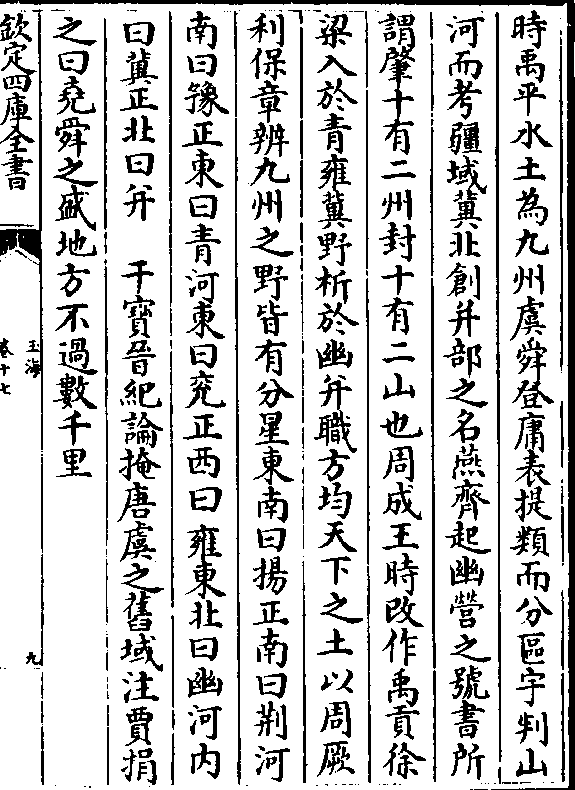 時禹平水土為九州虞舜登庸表提類而分區宇判山
河而考疆域冀北創幷部之名燕齊起幽營之號書所
謂肇十有二州封十有二山也周成王時改作禹貢徐
梁入於青雍冀野析於幽幷職方均天下之土以周厥
利保章辨九州之野皆有分星東南曰揚正南曰荆河
南曰豫正東曰青河東曰兖正西曰雍東北曰幽河内
曰冀正北曰幷　干寶晉紀論掩唐虞之舊域注賈捐
之曰堯舜之盛地方不過數千里
欽定四庫全書
玉海
卷十七
九